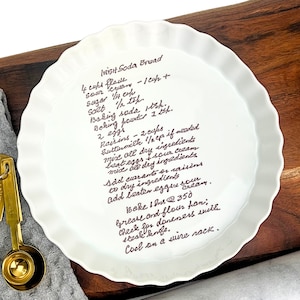 Irish Soda Bread
4 cups flour
Sour cream - 1 cup +
Sugar 1/2 cup
Salt 1/2 tsp.
Baking soda 1 tsp.
Baking powder 2 tsp.
2 eggs
Raisins - 2 cups
Buttermilk 1/2 cup if needed
Mix all dry ingredients
Beat eggs + sour cream
mix all dry ingredients
Add currants or raisins
to dry ingredients
Add beaten eggs + sour cream.
Bake 1 hr @ 350
Grease and flour pan;
Check for doneness with
steak knife.
Cool on a wire rack.